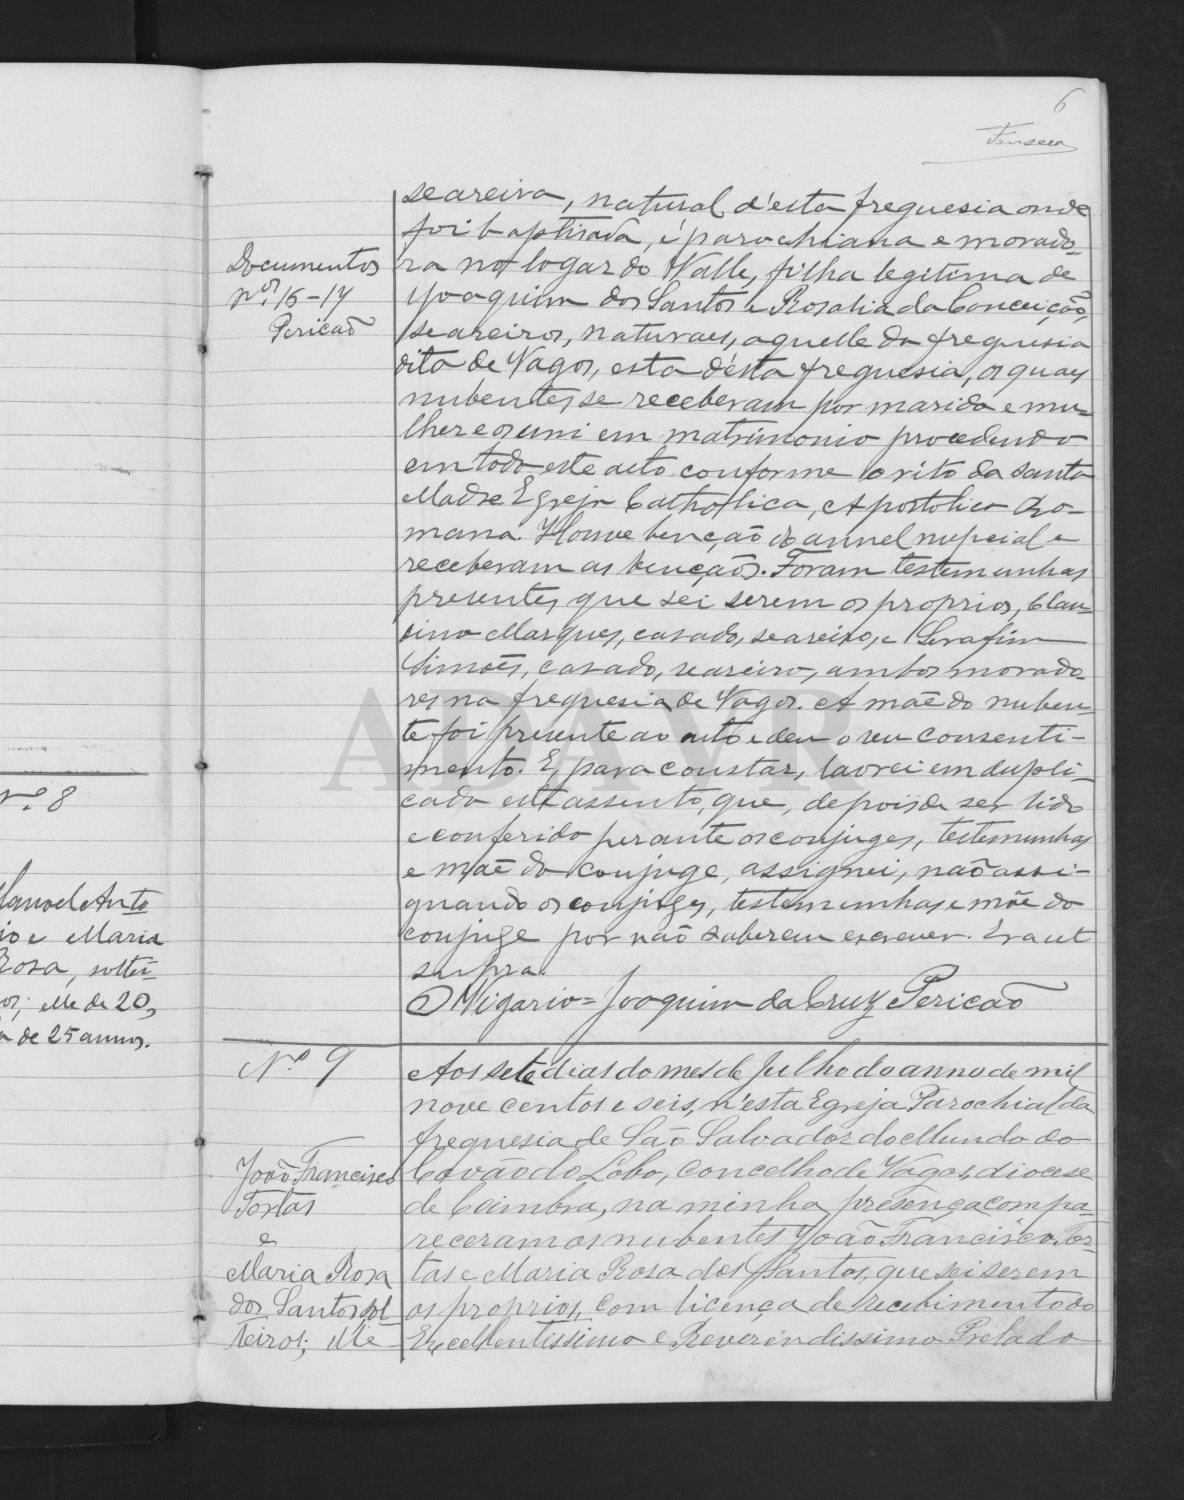 6
Fonseca
seareira, natural d'esta freguesia onde
foi baptisada, é parochiana e morado-
ra no logar do Valle, filha legitima de
Joaquim dos Santos e Rosalia da Conceição,
seareiros, naturaes, aquelle da freguesia
dita de Vagos, esta d'esta freguesia, os quaes
nubentes se receberam por marido e mu-
lher e os uni em matrimonio procedendo
em todo este acto conforme o rito da santa
Madre Egreja Catholica, Apostolica Ro-
mana. Houve benção do annel nupcial e
receberam as bençãos. Foram testemunhas
presentes, que sei serem os proprios, Clau-
dino Marques, casado, seareiro, e Serafim
Simões, casado, seareiro, ambos morado-
res na freguesia de Vagos. A mãe do nuben-
te foi presente ao acto e deu o seu consenti-
mento. E, para constar, lavrei em dupli-
cado este assento, que, depois de ser lido
e conferido perante os conjuges, testemunhas
e mãe do conjuge, assignei, não assi-
gnando os conjuges, testemunhas e mãe do
conjuge por não saberem escrever. Era ut
supra.
O Vigario = Joaquim da Cruz Pericão
Documentos
nos 16-17
Pericão
Nº 9
João Francisco
Tortas
e
Maria Rosa
dos Santos, sol-
teiros; elle
Aos sete dias do mes de Julho do anno de mil
nove centos e seis, n'esta Egreja Parochial da
freguesia de São Salvador do Mundo do
Covão do Lobo, concelho de Vagos, diocese
de Coimbra, na minha presença compa-
receram os nubentes João Francisco Tor-
tas e Maria Rosa dos Santos, que sei serem
os proprios, com licença de recebimento do
Excellentissimo e Reverendissimo Prelado
Nº 8
Manoel Anto
nio e Maria
Rosa, soltei-
ros; elle de 20,
a de 25 annos.